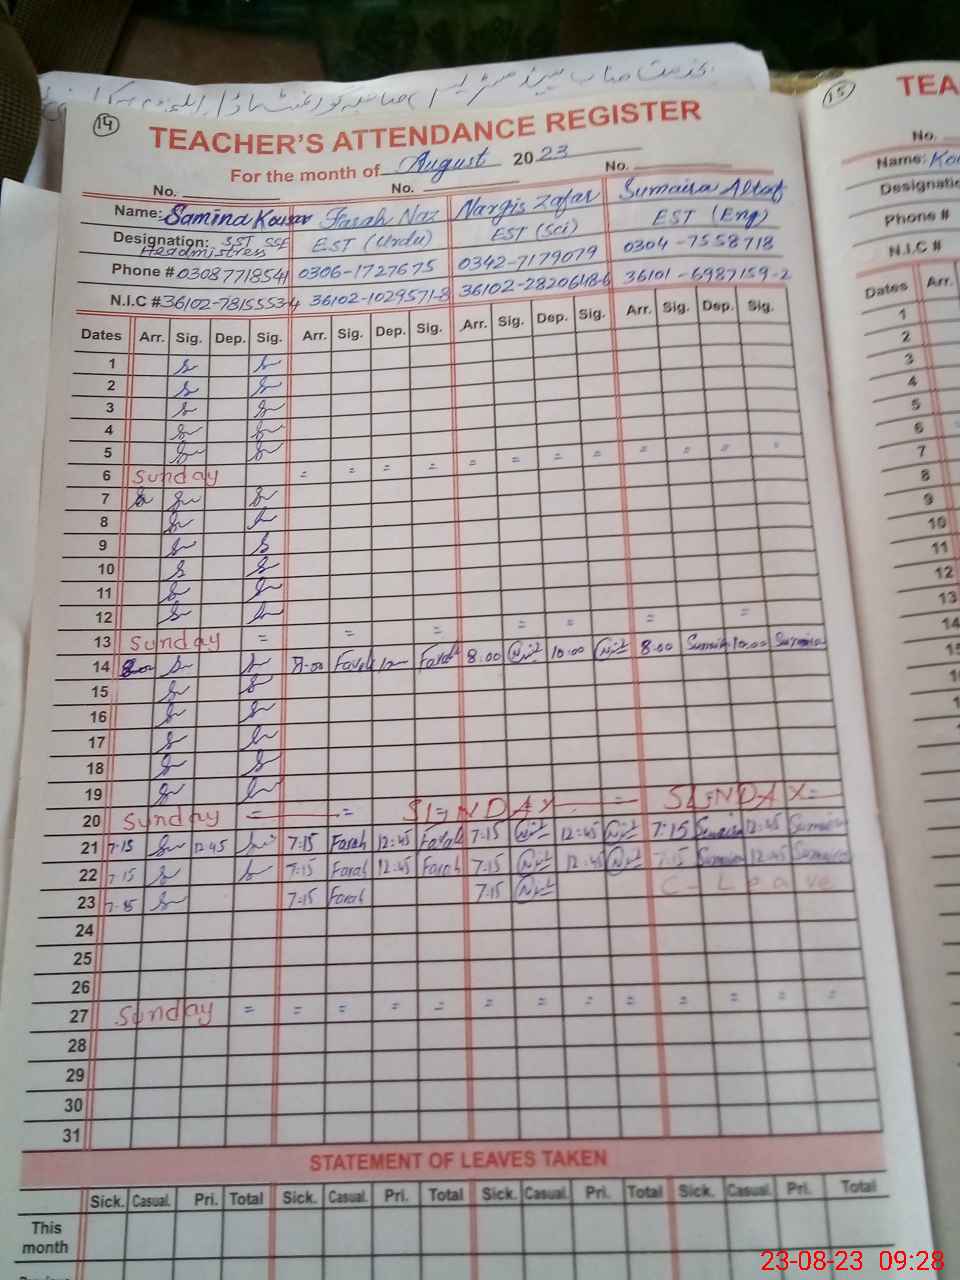 14
TEACHER'S ATTENDANCE REGISTER
For the month of August 2023
No. No. No.
Name: Samina Kousar Farah Naz Nargis Zafar Sumaira Altaf
Designation: SST SSE Headmistress EST (Urdu) EST (Sci) EST (Eng)
Phone # 03087718541 0306-1727675 0342-7179079 0304-7558718
N.I.C # 36102-7815553-4 36102-1029571-8 36102-2820618-6 36101-6987159-2
Dates Arr. Sig. Dep. Sig. Arr. Sig. Dep. Sig. Arr. Sig. Dep. Sig. Arr. Sig. Dep. Sig.
1
2
3
4
5
6 Sunday = = = = = = = = = = = =
7
8
9
10
11
12
13 Sunday = = = = = = =
14 8.00 Farah 12 Farah 8.00 10.00 8.00 Sumaira 10.00 Sumaira
15
16
17
18
19
20 Sunday = = SUNDAY = SUNDAY =
21 7:15 12:45 7:15 Farah 12:45 Farah 7:15 12:45 7:15 Sumaira 12:45 Sumaira
22 7:15 7:15 Farah 12:45 Farah 7:15 12:45 7:15 Sumaira 12:45 Sumaira
23 7:15 7:15 Farah 7:15 C-Leave
24
25
26
27 Sunday = = = = = = = = = = = = =
28
29
30
31
STATEMENT OF LEAVES TAKEN
Sick. Casual. Pri. Total Sick. Casual. Pri. Total Sick. Casual. Pri. Total Sick. Casual. Pri. Total
This month
15
TEA
No.
Name: Ko
Designatio
Phone #
N.I.C #
Dates Arr.
1
2
3
4
5
6
7
8
9
10
11
12
13
14
23-08-23 09:28